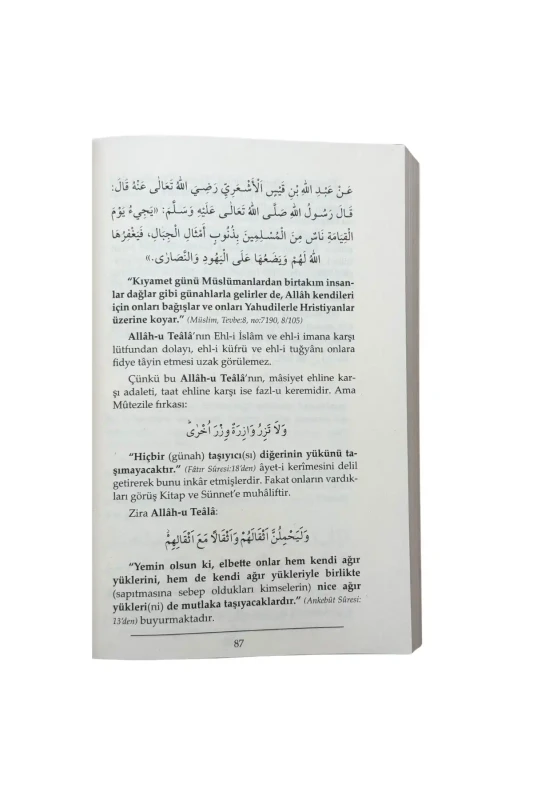 عَنْ عَبْدِ اللهِ بْنِ قَيْسٍ الْأَشْعَرِيِّ رَضِيَ اللهُ تَعَالٰى عَنْهُ قَالَ:
قَالَ رَسُولُ اللهِ صَلَّى اللهُ تَعَالٰى عَلَيْهِ وَسَلَّمَ: «يَجِيءُ يَوْمَ
الْقِيَامَةِ نَاسٌ مِنَ الْمُسْلِمِينَ بِذُنُوبٍ أَمْثَالِ الْجِبَالِ، فَيَغْفِرُهَا
اللهُ لَهُمْ وَيَضَعُهَا عَلَى الْيَهُودِ وَالنَّصَارٰى.»
"Kıyamet günü Müslümanlardan birtakım insan-
lar dağlar gibi günahlarla gelirler de, Allâh kendileri
için onları bağışlar ve onları Yahudilerle Hristiyanlar
üzerine koyar." (Müslim, Tevbe:8, no:7190, 8/105)
Allâh-u Teâlâ'nın Ehl-i İslâm ve ehl-i imana karşı
lütfundan dolayı, ehl-i küfrü ve ehl-i tuğyânı onlara
fidye tâyin etmesi uzak görülemez.
Çünkü bu Allâh-u Teâlâ'nın, mâsiyet ehline kar-
şı adaleti, taat ehline karşı ise fazl-u keremidir. Ama
Mûtezile fırkası:
وَلَا تَزِرُ وَازِرَةٌ وِزْرَ اُخْرٰىۜ
"Hiçbir (günah) taşıyıcı(sı) diğerinin yükünü ta-
şımayacaktır." (Fâtır Sûresi:18'den) âyet-i kerîmesini delil
getirerek bunu inkâr etmişlerdir. Fakat onların vardık-
ları görüş Kitap ve Sünnet'e muhâliftir.
Zira Allâh-u Teâlâ:
وَلَيَحْمِلُنَّ اَثْقَالَهُمْ وَاَثْقَالًا مَعَ اَثْقَالِهِمْۘ
"Yemin olsun ki, elbette onlar hem kendi ağır
yüklerini, hem de kendi ağır yükleriyle birlikte
(sapıtmasına sebep oldukları kimselerin) nice ağır
yükleri(ni) de mutlaka taşıyacaklardır." (Ankebût Sûresi:
13'den) buyurmaktadır.
87